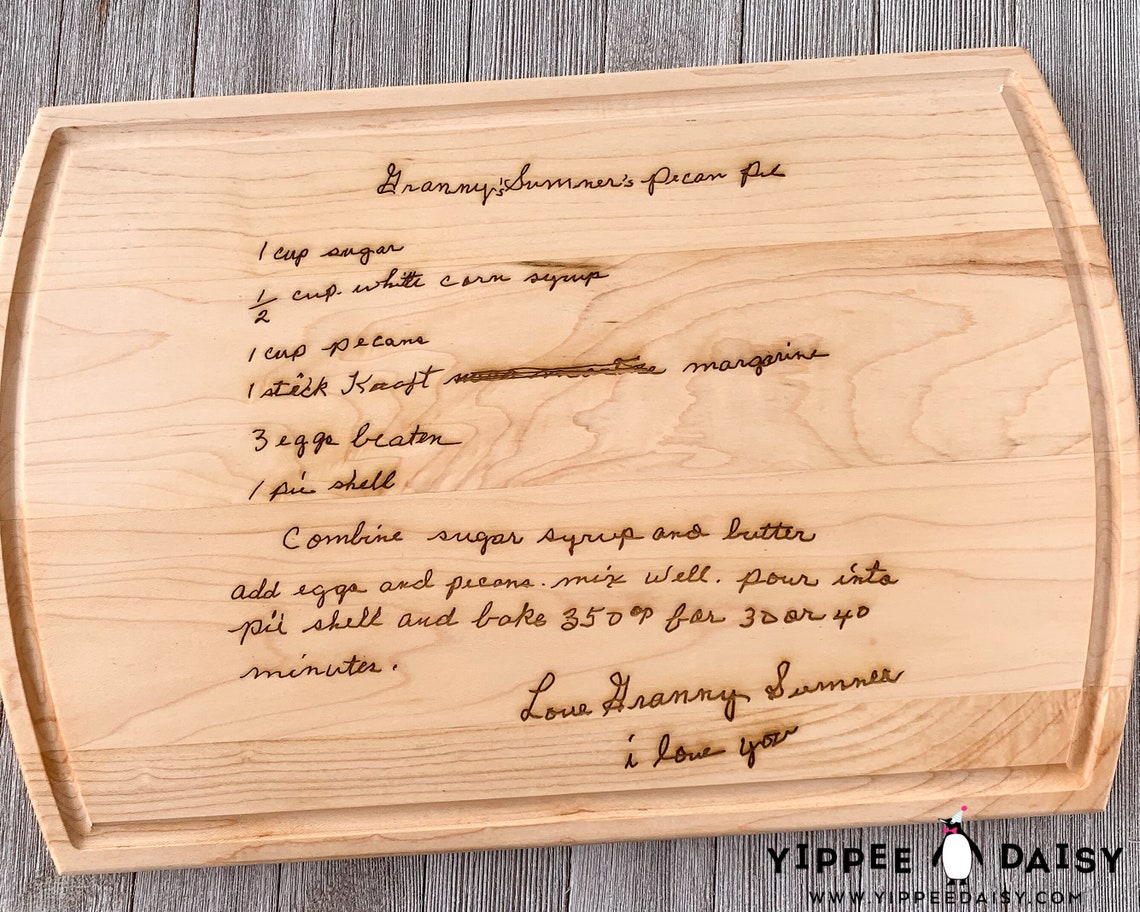 Granny's Sumner's Pecan Pie
1 cup sugar
1/2 cup white corn syrup
1 cup pecans
1 stick Kraft margarine
3 eggs beaten
1 pie shell
Combine sugar syrup and butter
add eggs and pecans. mix well. pour into
pie shell and bake 350° for 30 or 40
minutes.
Love Granny Sumner
i love you
YIPPEE DAISY
WWW.YIPPEEDAISY.COM